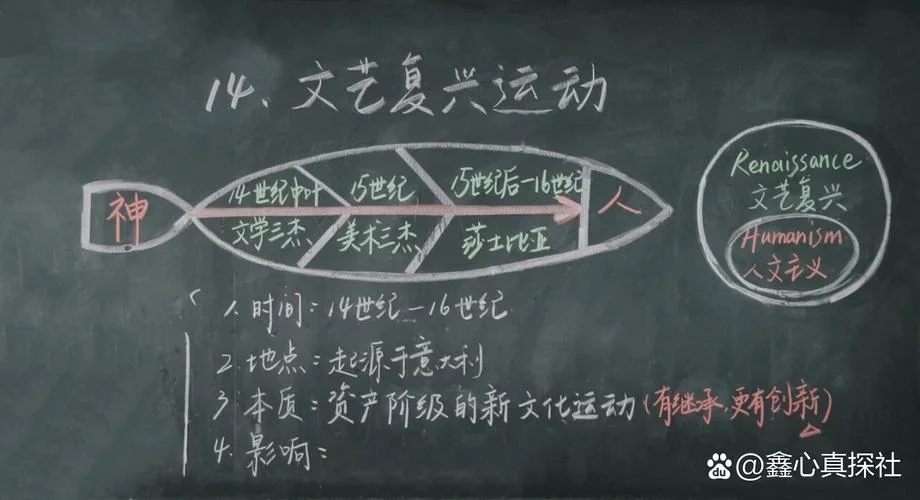 14、文艺复兴运动
神
14世纪中叶 15世纪 15世纪后一16世纪
人
文学三杰 美术三杰 莎士比亚
Renaissance
文艺复兴
Humanism
人文主义
1.时间:14世纪一16世纪
2.地点:起源于意大利
3.本质:资产阶级的新文化运动(有继承,更有创新)
4.影响:
du @鑫心真探社